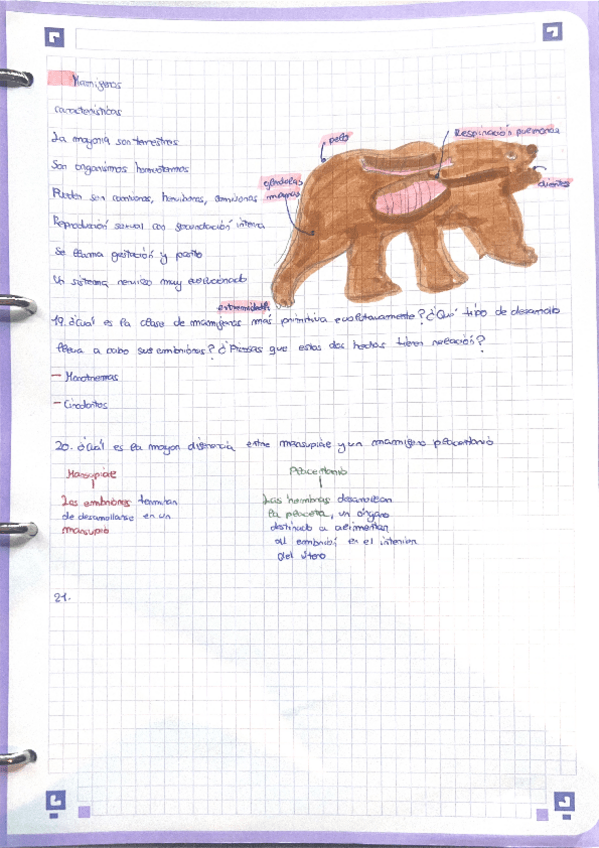 Mamíferos
características
La mayoría son terrestres
Son organismos homeotermos
Pueden ser carnívoros, herbívoros, omnívoros
Reproducción sexual con fecundación interna
Se llama gestación y parto
Un sistema nervioso muy evolucionado
pelo
Respiración pulmonar
glándulas
mamas
dientes
extremidades
19. ¿Cuál es la clase de mamíferos más primitiva evolutivamente? ¿Qué tipo de desarrollo
lleva a cabo sus embriones? ¿Piensas que estos dos hechos tienen relación?
- Monotremas
-
20. ¿Cuál es la mayor diferencia entre marsupial y un mamífero placentario
Marsupial
Los embriones terminan
de desarrollarse en un
marsupio
Placentario
Las hembras desarrollan
la placenta, un órgano
destinado a alimentar
al embrión en el interior
del útero
21.